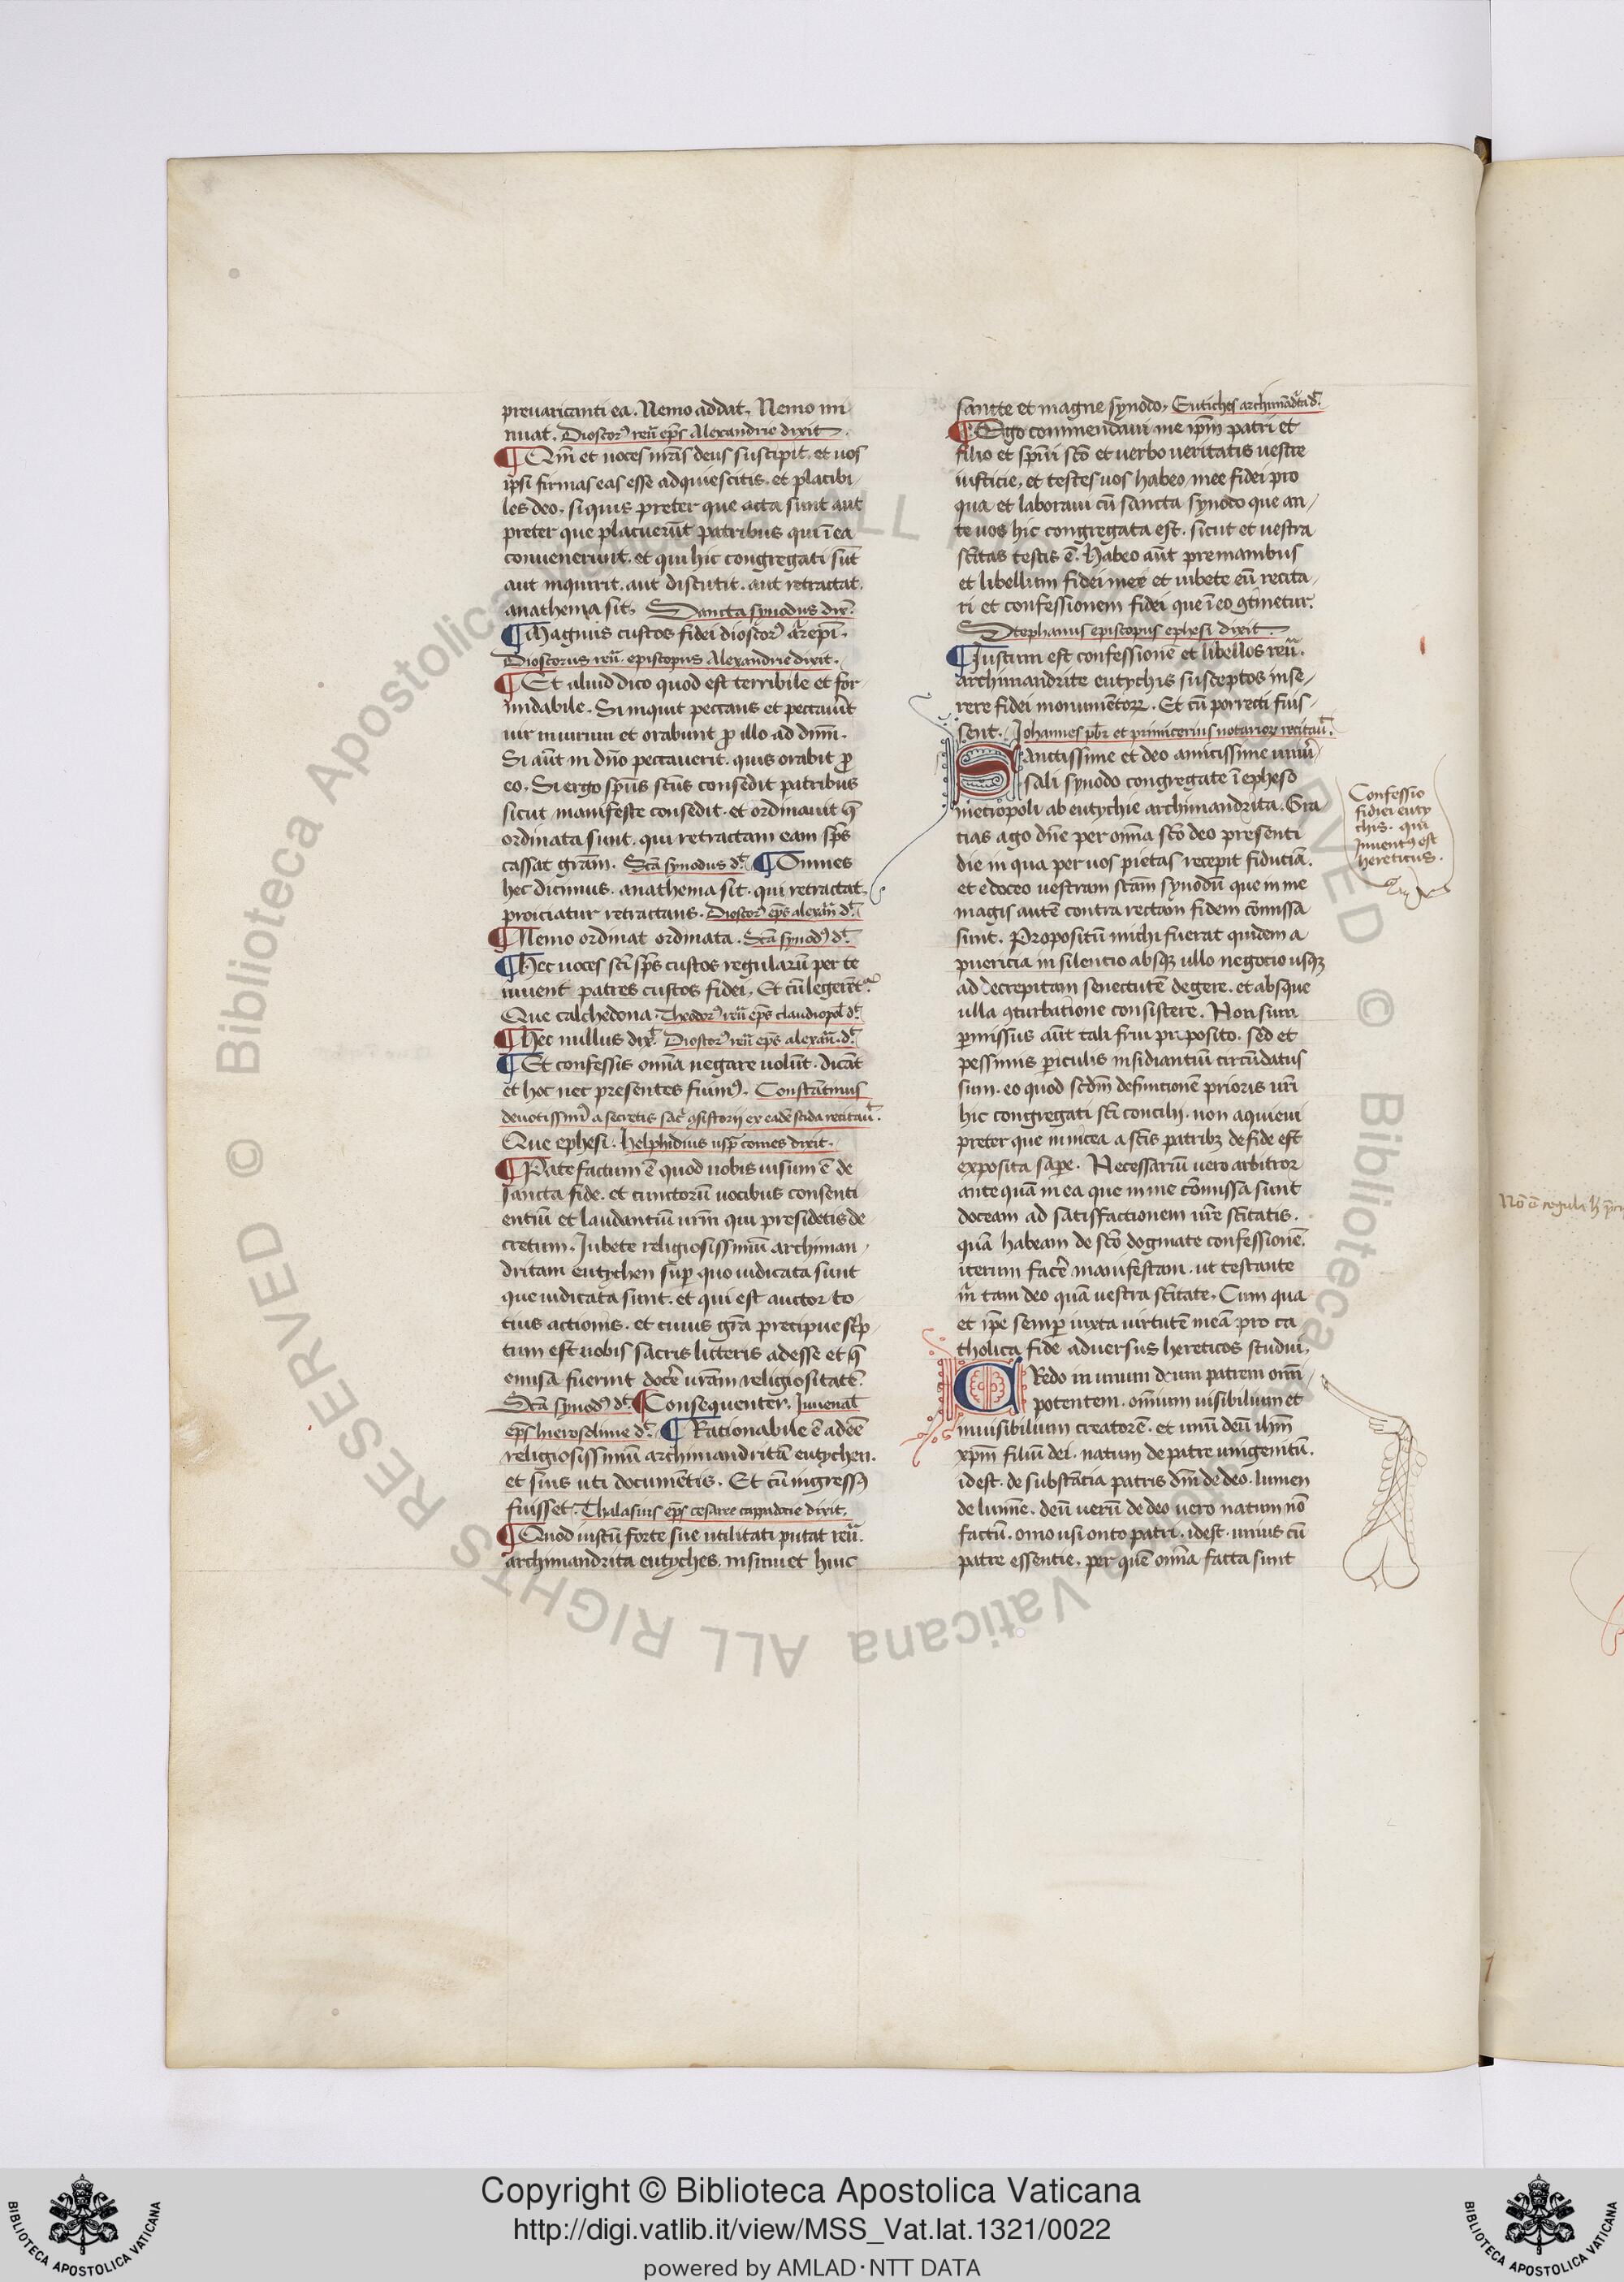 preuaricanti ea. Nemo addat. Nemo mi
nuat. Dioscorꝰ reu̅. ep̅s Alexandrie dixit.
¶ Qm̅ et uoces nr̅as deus suscipit. et uos
ip̅i firmas eas esse adquiescitis. et placibi
les deo. si quis preter que acta sunt aut
preter que placuerūt patribus qui ī ea
conuenerunt. et qui hic congregati sūt
aut inquirit. aut discutit. aut retractat.
anathema sit. Sancta synodus dix̅.
¶ Magnus custos fidei dioscorꝰ arepi̅.
Dioscorus reu̅. episcopus Alexandrie dixit.
¶ Et aliud dico quod est terribile et for
midabile. Si inquit peccans et peccauīt
uir in uirum et orabunt ꝓ illo ad dn̅m.
Si aūt in dn̅o peccauerit. quis orabit ꝓ
eo. Si ergo sp̅us sc̅us consedit patribus
sicut manifeste consedit. et ordinauit q̅
ordinata sunt. qui retractant eam sp̅s
cassat gr̅am. Sc̅a synodus d̅t. ¶ Omnes
hec dicimus. anathema sit. qui retractat.
proiciatur retractans. Dioscorꝰ ep̅s alexan̅ d̅t.
¶ Nemo ordinat ordinata. Sc̅a synodꝰ d̅t.
¶ Hec uoces sc̅i sp̅s custos regularū per te
uiuent patres custos fidei. Et cū legerēt͛.
Que calchedona. Theodorꝰ reu̅ ep̅s claudiopol̅ d̅t.
¶ Hec nullus dix̅t. Dioscorꝰ reu̅ ep̅s alexan̅. d̅t.
¶ Et confessis om̅a negare uolūt. dicāt
et hoc nec presentes fuimꝰ. Constātinus
deuotissimꝰ a secretis sac̅ ꝯsistorij ex eadē scida recitau̅t.
Que ephesi. helphidius usp̅ comes dixit.
¶ Patefactum ē quod uobis uisum ē de
sancta fide. et cunctorū uocibus consenti
entiū et laudantiū ur̅m qui presidetis de
cretum. Iubete religiosissimū archiman
dritam eutychen sup̲ quo iudicata sunt
que iudicata sunt. et qui est auctor to
tius actionis. et cuius gr̅a precipue sc̅p
tum est uobis sacris litteris adesse et q̅
emisa fuerint docēr ur̅am religiositatē.
Sc̅a synodꝰ d̅t. ¶ Consequenter. Iuuenal̅
ep̅s hierosolime d̅t. ¶ Rationabile ē adeē
religiosissimū archimandritā eutychen.
et suis uti documētis. Et cū ingressꝰ
fuisset. Thalasius ep̅s cesaree cappadocie dixit.
¶ Quod iustū forte sue utilitati putat reu̅.
archimandrita eutyches. insinuet huic
sancte et magne synodo. Eutiches archimād͛ta d̅t.
¶ Ego commendaui me ip̅m patri et
filio et sp̅ui sc̅o et uerbo ueritatis uestre
iusticie. et testes uos habeo mee fidei pro
qua et laboraui cū sancta synodo que an
te uos hic congregata est. sicut et uestra
sc̅itas testis ē. Habeo aūt pre manibus
et libellum fidei mee et iubete eū recita
ri et confessionem fidei que ī eo ꝯtinetur.
Stephanus episcopus ephesi dixit.
¶ Iustum est confessionē et libellos reu̅.
archimandrite eutychis susceptos inse
rere fidei monumētoꝝ. Et cū porrecti fuis
sent. Iohannes pb̅r et primicerius notarioꝝ recitau̅t.
Sanctissime et deo amicissime uniu̅
sali synodo congregate ī epheso
metropoli ab eutychie archimandrita. Gra
tias ago dn̅e per om̅a sc̅o deo presenti
die in qua per uos pietas recepit fiduciā.
et edoceo uestram sc̅am synodū que in me
magis autē contra rectam fidem cōmissa
sunt. Propositū michi fuerat quidem a
puericia in silentio absqꝫ ullo negocio usqꝫ
ad decrepitam senectutē degere. et absque
ulla ꝯturbatione consistere. Non sum
ꝑmissus aūt tali frui proposito. sed et
pessimis ꝑiculis insidiantiū circūdatus
sum. eo quod scd̅m definitionē prioris ur̅i
hic congregati sc̅i concilij. non aquieui
preter que in nicea a sc̅is patribꝫ de fide est
exposita sape. Necessariū uero arbitror
ante quā in ea que in me cōmissa sunt
doceam ad satisfactionem ur̅e sc̅itatis.
quā habeam de sc̅o dogmate confessionē.
iterum facēr manifestam. ut testante
m̅ tam deo quā uestra sc̅itate. Cum qua
et ip̅e semꝑ iuxta uirtutē meā pro ca
tholica fide aduersus hereticos studui.
CRedo in unum deum patrem om̅i
potentem. om̅ium uisibilium et
inuisibilium creatorē. et unū deū ihm̅
xpm̅ filiū dei. natum de patre unigenitū.
idest. de substātia patris dm̅ de deo. lumen
de lumīe. deū uerū de deo uero natum nō
factū. omousi onto patri. idest. unius cū
patre essentie. per quē om̅a facta sunt
Confessio
fidei euty
chis. qui
inuentꝰ est
hereticus.
Copyright © Biblioteca Apostolica Vaticana
http://digi.vatlib.it/view/MSS_Vat.lat.1321/0022
powered by AMLAD·NTT DATA
BIBLIOTECA APOSTOLICA VATICANA
BIBLIOTECA APOSTOLICA VATICANA
© Biblioteca Apostolica Vaticana ALL RIGHTS RESERVED